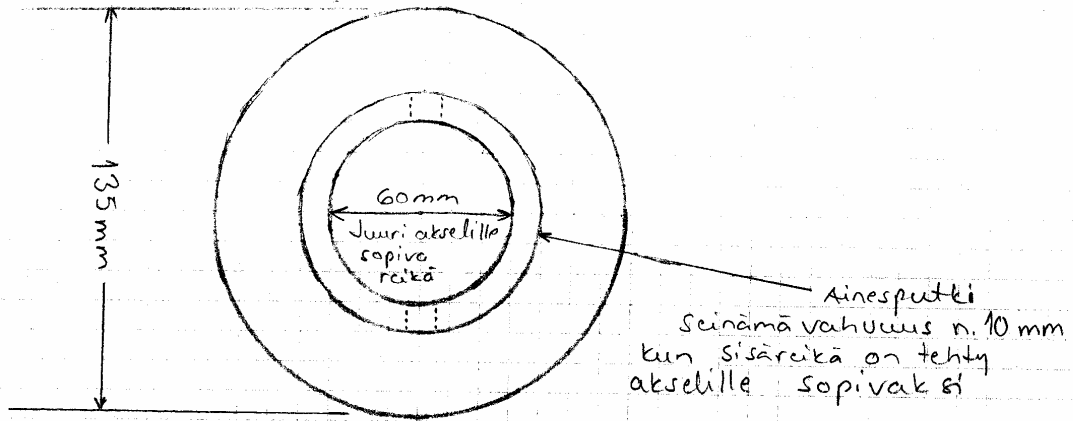 135mm
60mm
Juuri akselille
sopiva
reikä
Ainesputki
Seinämävahvuus n. 10 mm
kun sisäreikä on tehty
akselille sopivaksi